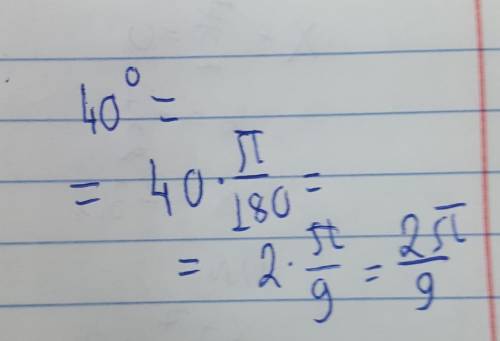 40° =
= 40 · π/180 =
= 2 · π/9 = 2π/9